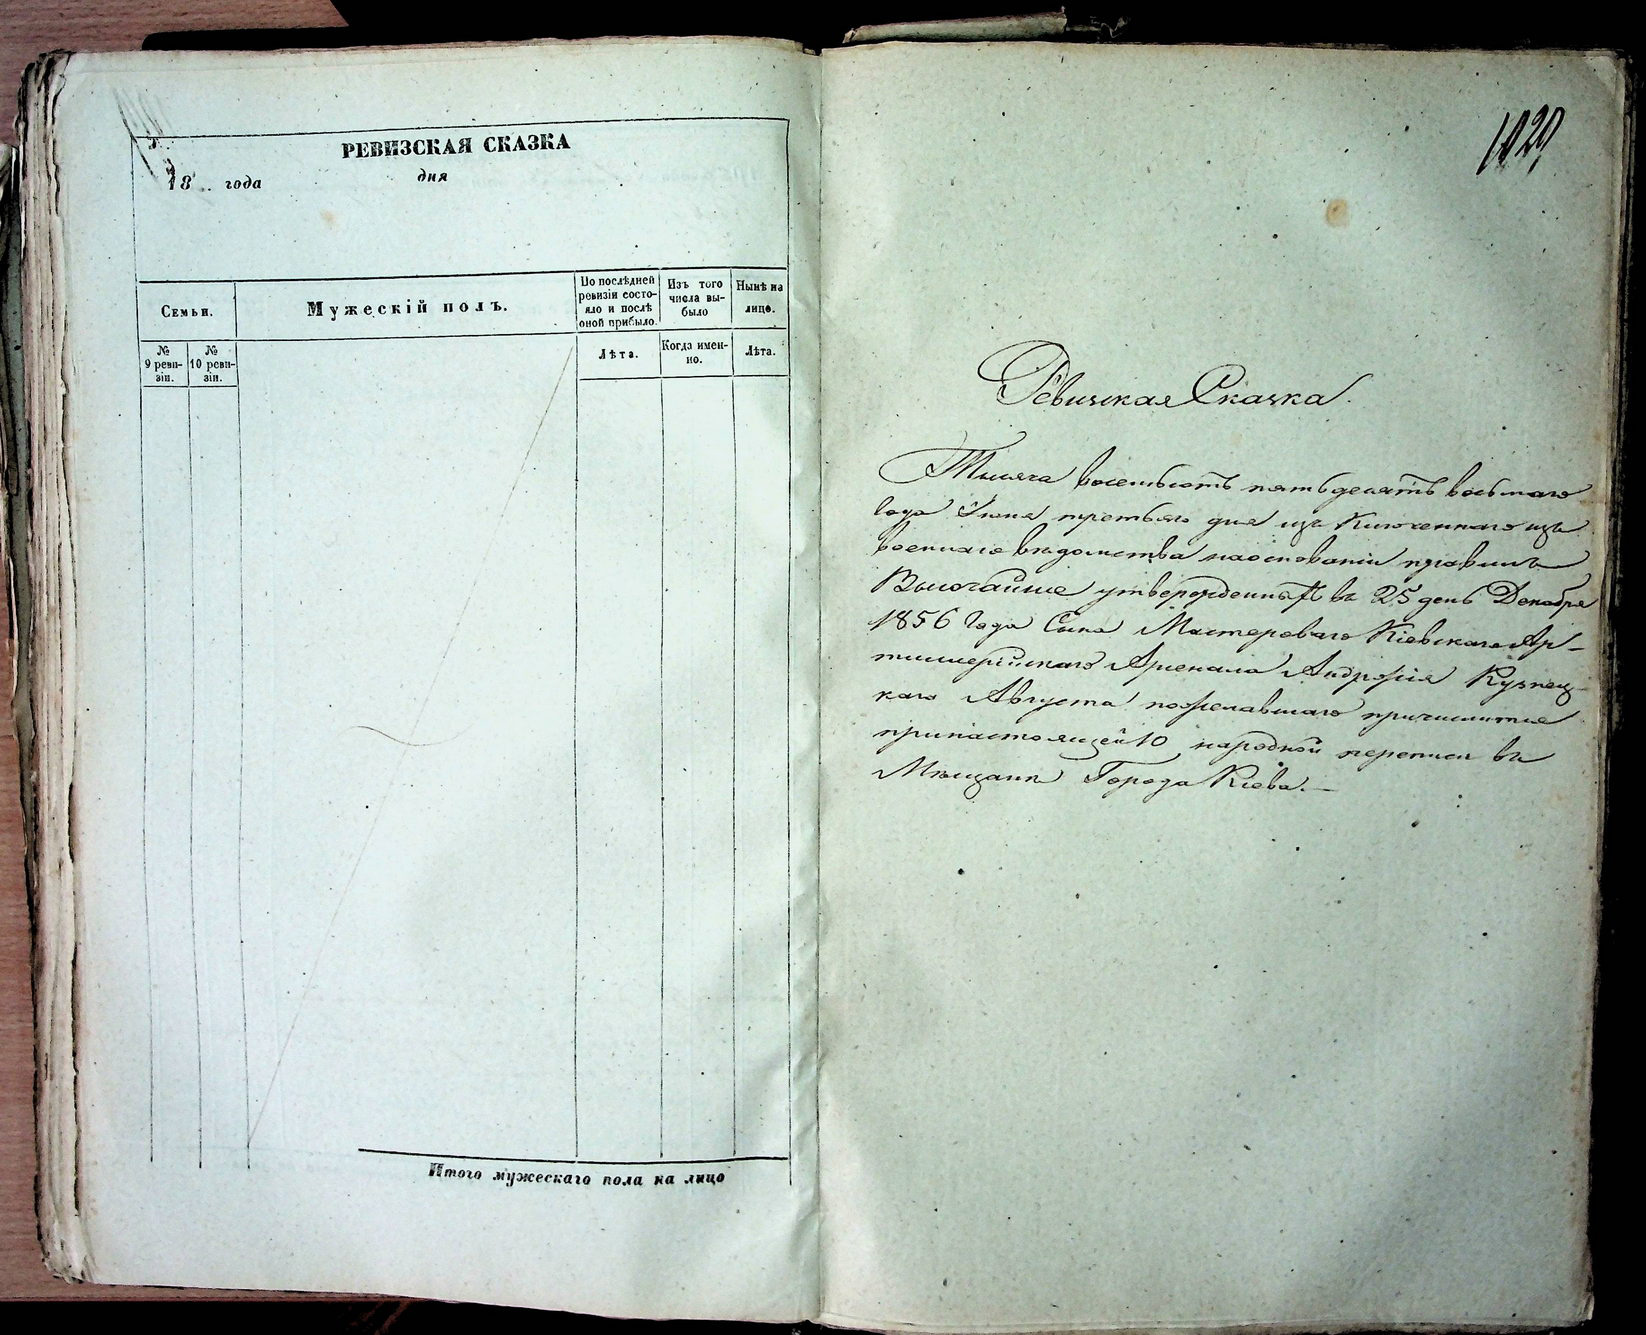 РЕВИЗСКАЯ СКАЗКА
18 .. года дня
Семьи.
Мужескій полъ.
По послѣдней ревизіи состояло и послѣ оной прибыло.
Изъ того числа выбыло
Нынѣ на лицо.
№ 9 ревизіи.
№ 10 ревизіи.
Лѣта.
Когда именно.
Лѣта.
Итого мужескаго пола на лицо
1029
Ревизская Сказка.
Тысяча восемьсотъ пятьдесятъ восьмаго
Года Іюня третьяго дня изъ Ключеннаго изъ
военнаго вѣдомства наоснованіи правилъ
Высочайше утвержденныхъ въ 25 день Декабря
1856 Года Сына Мастероваго Кіевскаго Ар-
тиллерійскаго Арсенала Андрея Кузнец-
каго Августа пожелавшаго причислится
принастоящей 10 народной переписи въ
Мѣщане Города Кіева.